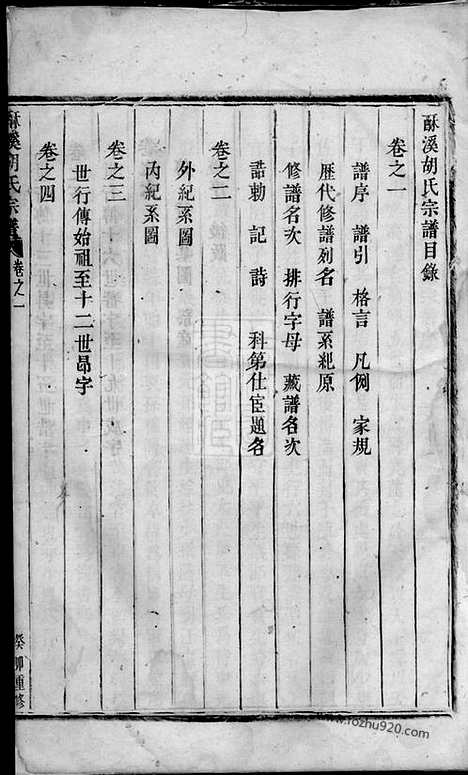 酥溪胡氏宗譜目錄
卷之一
譜序 譜引 格言 凡例 家規
歷代修譜列名 譜系紀原
修譜名次 排行字母 藏譜名次
誥勅 記 詩 科第仕宦題名
卷之二
外紀系圖
內紀系圖
卷之三
世行傳始祖至十二世昂字
卷之四
酥溪胡氏宗譜 卷之一
癸卯重修
www.rozhu920.com